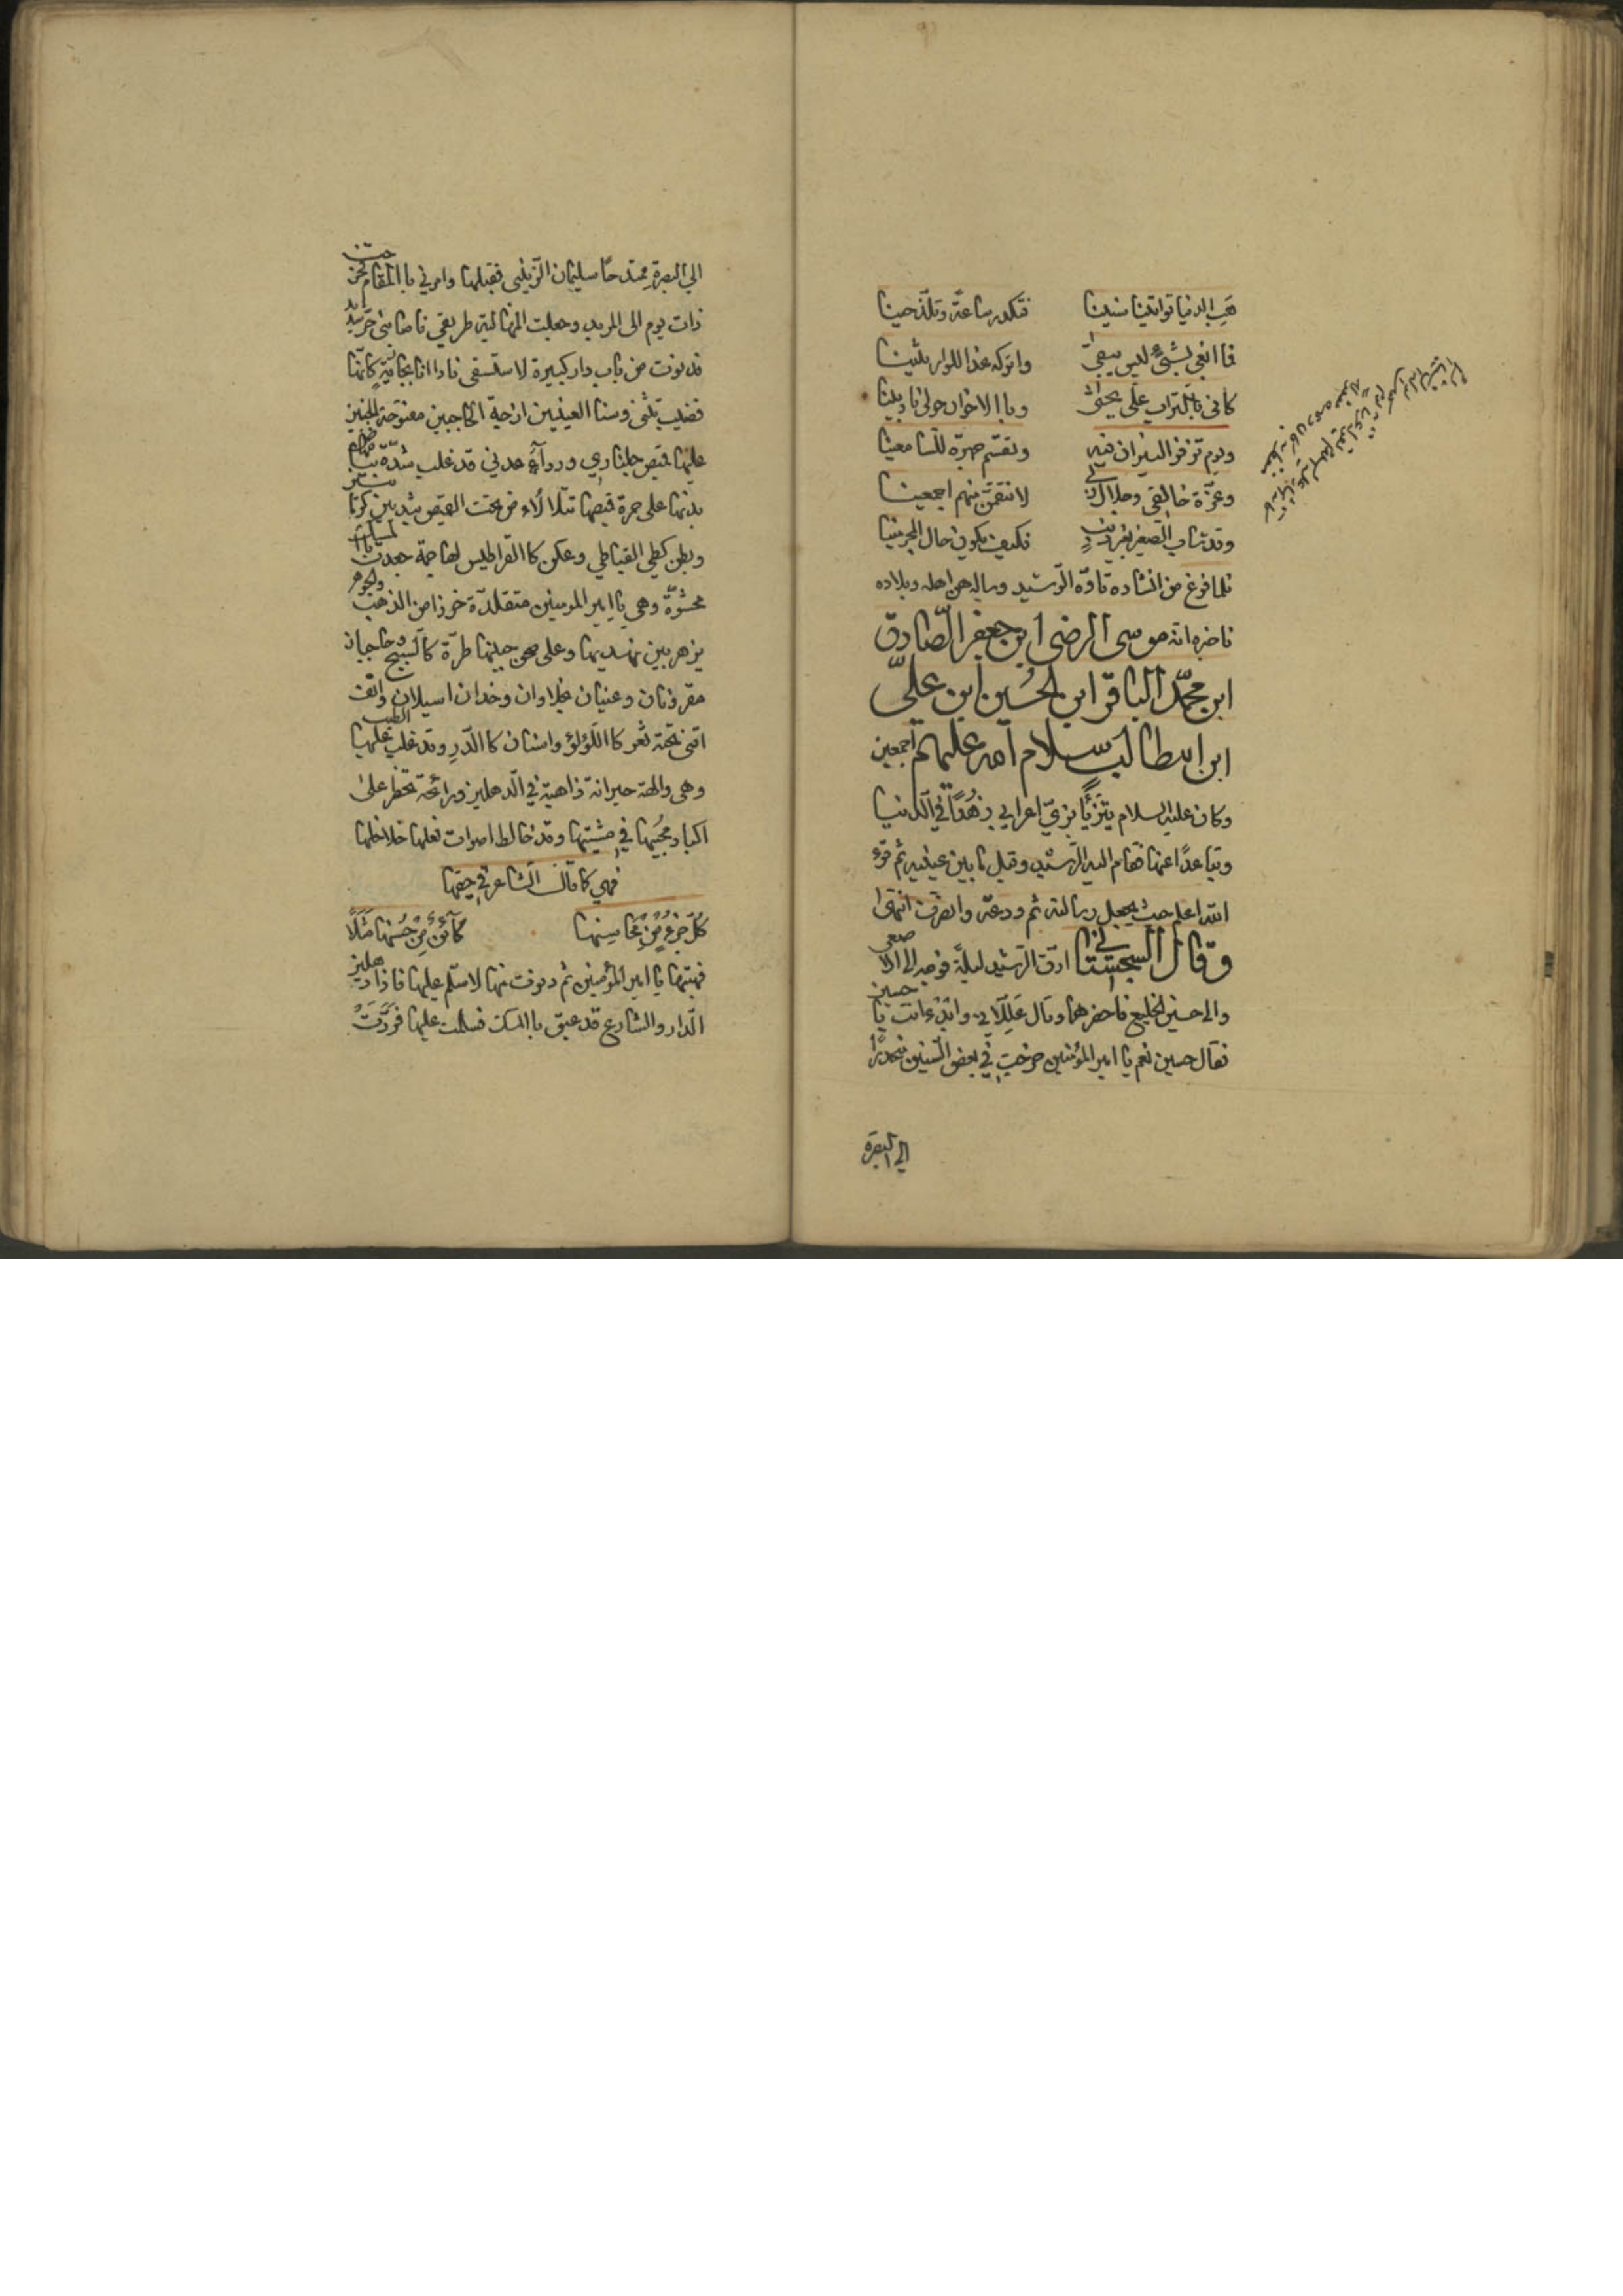 هب الدنيا تواتينا سنينا فتكدر ساعة وتلذ حينا
فما ابغي بشيء ليس يبقى واتركه غدا للوارثينا
كاني بالتراب علي يحثوا وباالاخوان حولي نادبينا
ويوم تزفر النيران فيه وتقسم جهرة للسامعينا
وعزة خالقي وجلال لانتقمن منهم اجمعينا
وقد شاب الصغير بغير ذنب فكيف يكون حال المجرمينا
فلما فرغ من انشاده تاوه الرشيد وساله عن اهله وبلاده
فاخبره انه موسى الرضى ابن جعفر الصادق
ابن محمد الباقر ابن الحسين ابن علي
ابن ابيطالب سلام الله عليهم اجمعين
وكان عليه السلام يتزيا بزي اعرابي زهدا في الدنيا
وتباعدا عنها فقام اليه الرشيد وقبل ما بين عينيه ثم قرء
الله اعلم حيث يجعل رسالته ثم ودعه وانصرف انتهى
وقال السجستاني ارق الرشيد ليلة فوجه الى الاصمعي
والى حسين الخليع فاحضرهما وقال عللاني وابدء انت يا حسين
فقال حسين نعم يا امير المؤمنين خرجت في بعض السنين منحدرا
الي البصرة
الي البصرة ممتدحا سليمان الزينبي فقبلها وامرني باالمقام فخرجت
ذات يوم الى المربد وجعلت المهالبة طريقي فاصابني حر شديد
فدنوت من باب دار كبيرة لاستسقى فاذا انا بجارية كانها
قضيب يتثنى وسنا العينين ازجية الحاجبين مفتوحة الجبين
عليها قميص جلناري ورداء عدني قد غلب شدة بياض
بدنها على حمرة قميصها تتلالاء من تحت القميص بثديين كرمانتين
وبطن كطي القباطي وعكن كاالقراطيس لها جمة جعدت باالمسك
محشوة وهي يا امير المومنين متقلدة خرزا من الذهب والجوهر
يزهر بين نهديها وعلى صحن جبينها طرة كالسبج حاجبان
مقرونان وعينان نجلاوان وخدان اسيلان وانف
اقنى تحته ثغر كااللؤلؤ واسنان كاالدر وقد غلب عليها الطيب
وهي والهة حيرانة ذاهبة في الدهليز ورائحة تخطر على
اكباد محبيها في مشيتها وقد خالط اصوات نعلها خلاخلها
فهي كما قال الشاعر في حقها
كل جزء من محاسنها كائن من حسنها مثلا
فهبتها يا امير المؤمنين ثم دنوت منها لاسلم عليها فاذا دهليز
الدار والشارع قد عبق باالمسك فسلمت عليها فردت